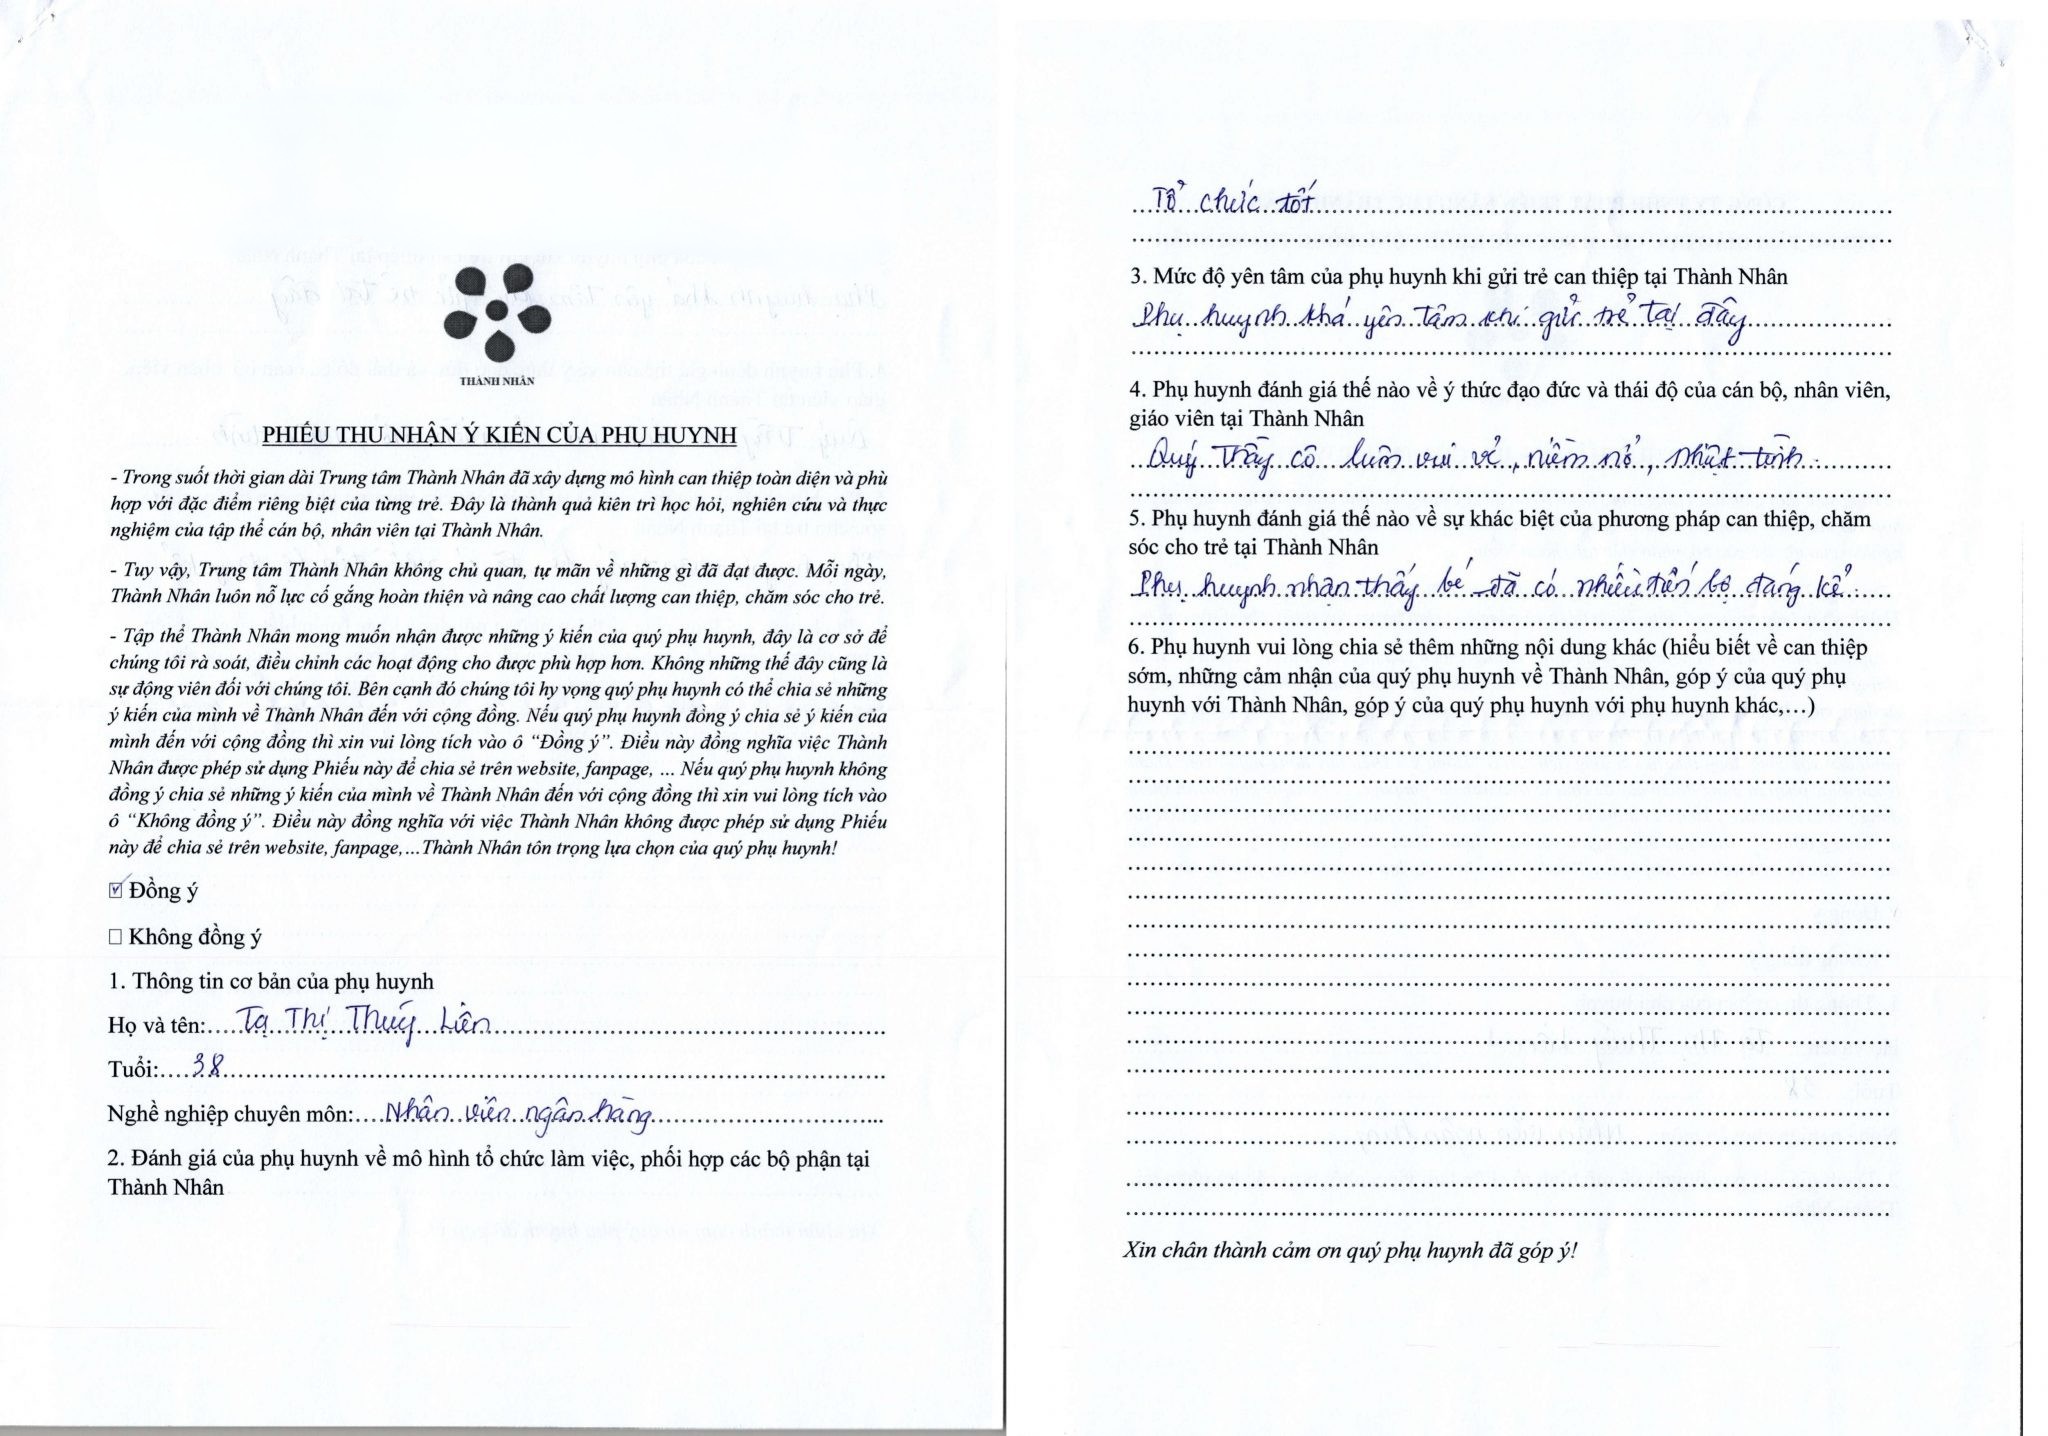 THÀNH NHÂN
PHIẾU THU NHẬN Ý KIẾN CỦA PHỤ HUYNH
- Trong suốt thời gian dài Trung tâm Thành Nhân đã xây dựng mô hình can thiệp toàn diện và phù
hợp với đặc điểm riêng biệt của từng trẻ. Đây là thành quả kiên trì học hỏi, nghiên cứu và thực
nghiệm của tập thể cán bộ, nhân viên tại Thành Nhân.
- Tuy vậy, Trung tâm Thành Nhân không chủ quan, tự mãn về những gì đã đạt được. Mỗi ngày,
Thành Nhân luôn nỗ lực cố gắng hoàn thiện và nâng cao chất lượng can thiệp, chăm sóc cho trẻ.
- Tập thể Thành Nhân mong muốn nhận được những ý kiến của quý phụ huynh, đây là cơ sở để
chúng tôi rà soát, điều chỉnh các hoạt động cho được phù hợp hơn. Không những thế đây cũng là
sự động viên đối với chúng tôi. Bên cạnh đó chúng tôi hy vọng quý phụ huynh có thể chia sẻ những
ý kiến của mình về Thành Nhân đến với cộng đồng. Nếu quý phụ huynh đồng ý chia sẻ ý kiến của
mình đến với cộng đồng thì xin vui lòng tích vào ô “Đồng ý”. Điều này đồng nghĩa việc Thành
Nhân được phép sử dụng Phiếu này để chia sẻ trên website, fanpage, ... Nếu quý phụ huynh không
đồng ý chia sẻ những ý kiến của mình về Thành Nhân đến với cộng đồng thì xin vui lòng tích vào
ô “Không đồng ý”. Điều này đồng nghĩa với việc Thành Nhân không được phép sử dụng Phiếu
này để chia sẻ trên website, fanpage,...Thành Nhân tôn trọng lựa chọn của quý phụ huynh!
☑ Đồng ý
☐ Không đồng ý
1. Thông tin cơ bản của phụ huynh
Họ và tên: Tạ Thị Thúy Liên
Tuổi: 38
Nghề nghiệp chuyên môn: Nhân viên ngân hàng
2. Đánh giá của phụ huynh về mô hình tổ chức làm việc, phối hợp các bộ phận tại
Thành Nhân
Tổ chức tốt
3. Mức độ yên tâm của phụ huynh khi gửi trẻ can thiệp tại Thành Nhân
Phụ huynh khá yên tâm khi gửi trẻ tại đây
4. Phụ huynh đánh giá thế nào về ý thức đạo đức và thái độ của cán bộ, nhân viên,
giáo viên tại Thành Nhân
Quý Thầy cô luôn vui vẻ, niềm nở, nhiệt tình.
5. Phụ huynh đánh giá thế nào về sự khác biệt của phương pháp can thiệp, chăm
sóc cho trẻ tại Thành Nhân
Phụ huynh nhận thấy bé đã có nhiều tiến bộ đáng kể.
6. Phụ huynh vui lòng chia sẻ thêm những nội dung khác (hiểu biết về can thiệp
sớm, những cảm nhận của quý phụ huynh về Thành Nhân, góp ý của quý phụ
huynh với Thành Nhân, góp ý của quý phụ huynh với phụ huynh khác,…)
Xin chân thành cảm ơn quý phụ huynh đã góp ý!